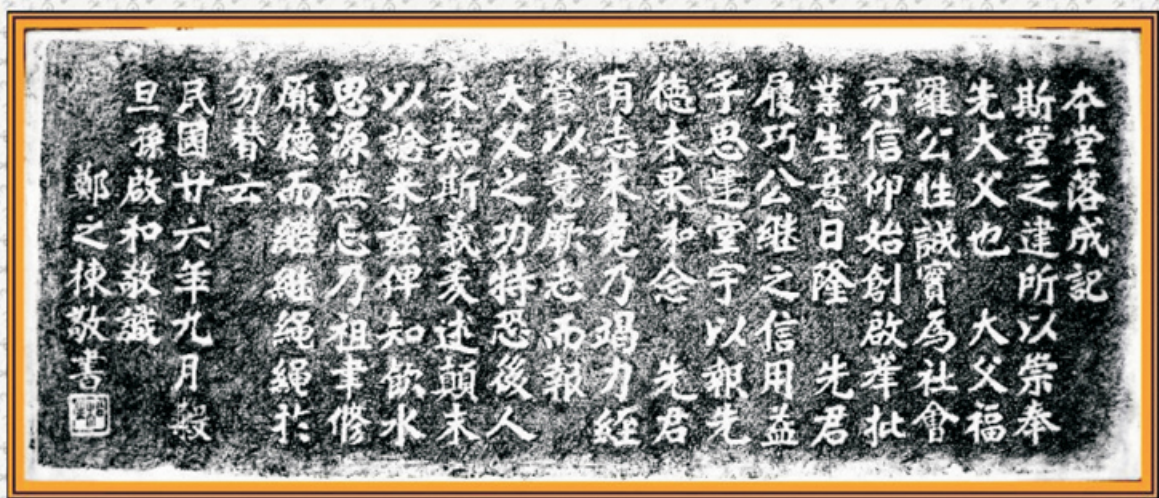 夲堂落成記
斯堂之建所以崇奉
先大父也 大父福
羅公性誠實為社會
所信仰始創啟峯批
業生意日隆 先君
履巧公継之信用益
孚思建堂宇以報先
德未果和念 先君
有志未竟乃竭力經
營以竟厥志而報
大父之功特恐後人
未知斯義爰述顛末
以諗来兹俾知飲水
思源無忘乃祖聿修
厥德而繼継繩繩於
勿替云
民國廿六年九月穀
旦孫啟和敬識
鄭之棟敬書